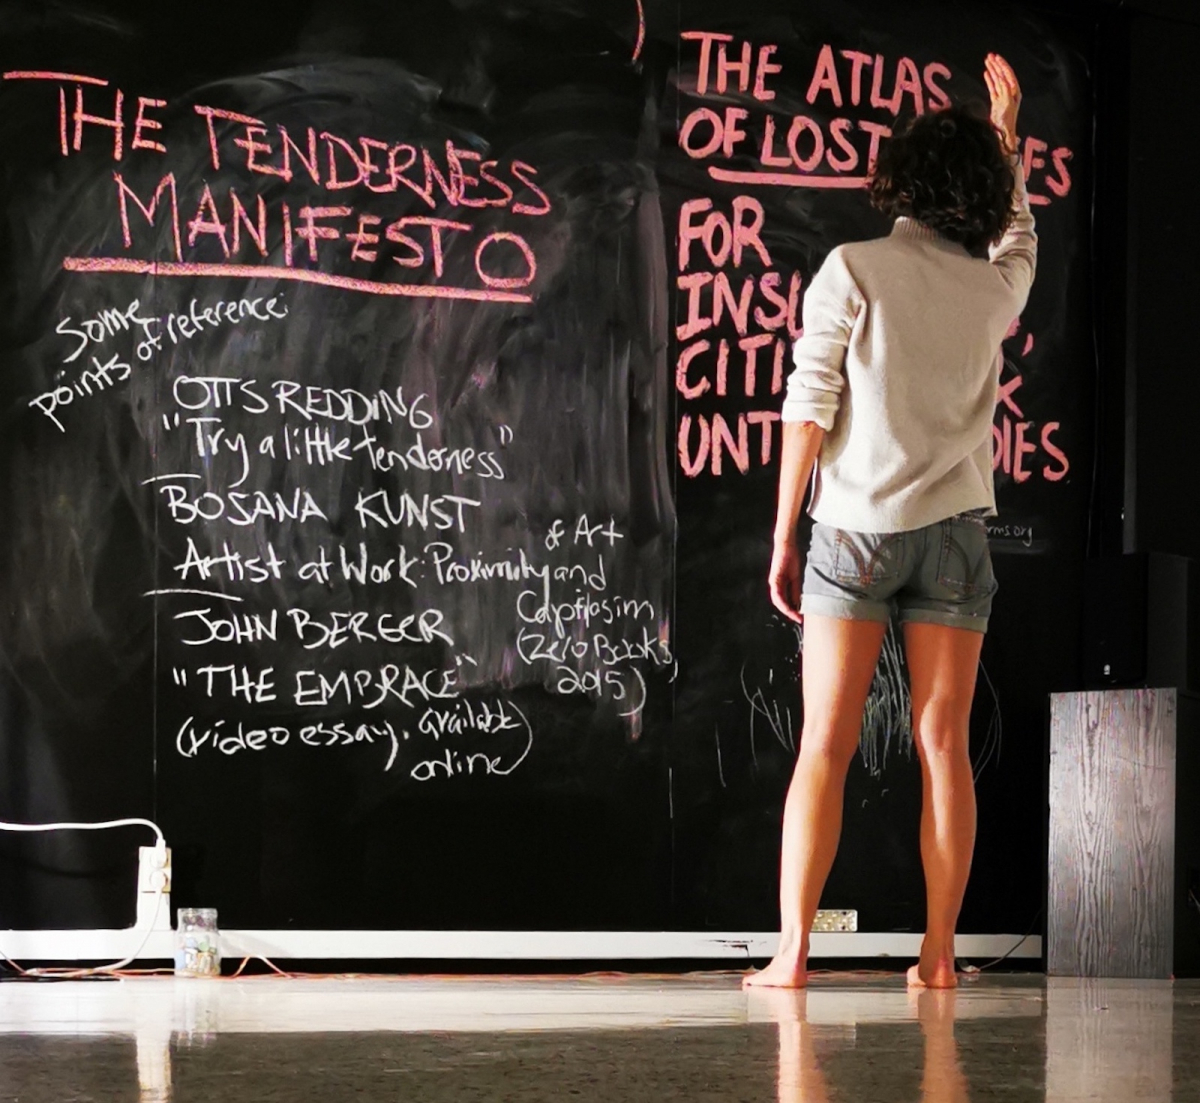 THE TENDERNESS
MANIFESTO
Some
points of reference:
OTIS REDDING
"Try a little tenderness"
BOJANA KUNST
Artist at Work: Proximity of Art
and
Capitalism
(Zero Books,
2015)
JOHN BERGER
"THE EMBRACE"
(video essay, available
online)
THE ATLAS
OF LOST
FOR